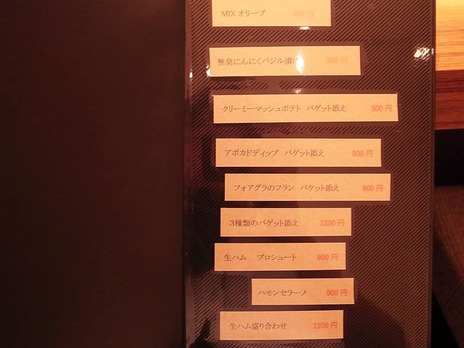 MIX オリーブ
無臭にんにくバジル漬け
クリーミーマッシュポテト バゲット添え 500円
アボカドディップ バゲット添え 500円
フォアグラのフラン バゲット添え 800円
3種類のバゲット添え 1200円
生ハム プロシュート 900円
ハモンセラーノ 900円
生ハム盛り合わせ 1200円